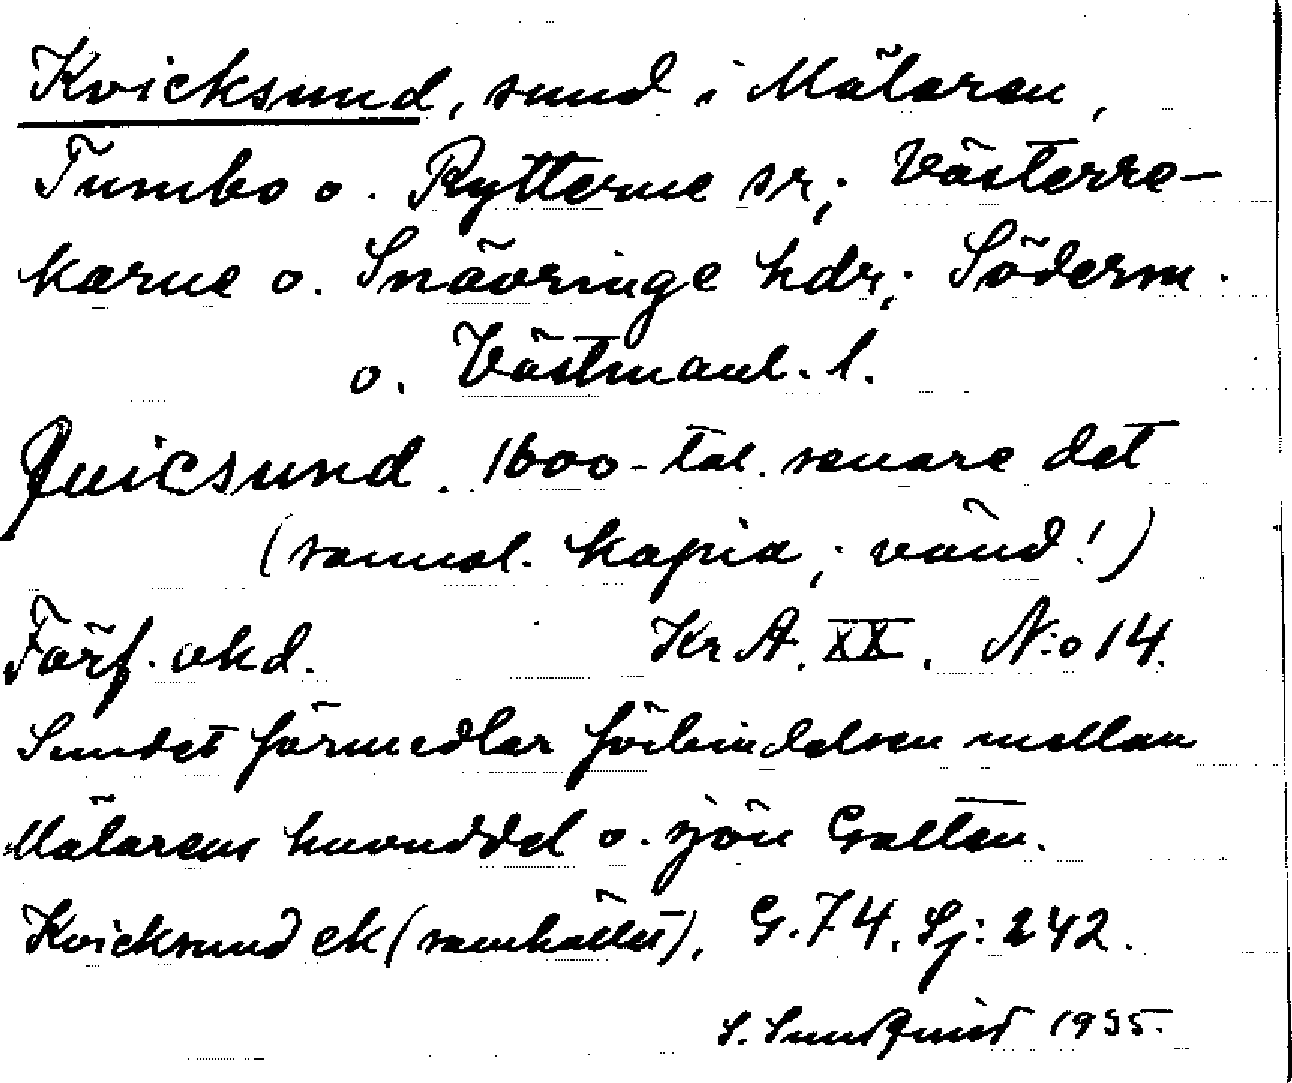 Kvicksund, sund i Mälaren,
Tumbo o. Rytterne sr; Västerre-
karne o. Snävringe hdr; Söderm.
o. Västmanl. l.
Quicsund. 1600-tal. senare det
(samal. kopia; vänd!)
Förf. okd. KrA. XX. N:o 14.
Sundet förmedlar förbindelsen mellan
Mälarens huvuddel o. sjön Galten.
Kvicksund ek (samhället), G. 74. Sj: 242.
S. Sundquist 1935.